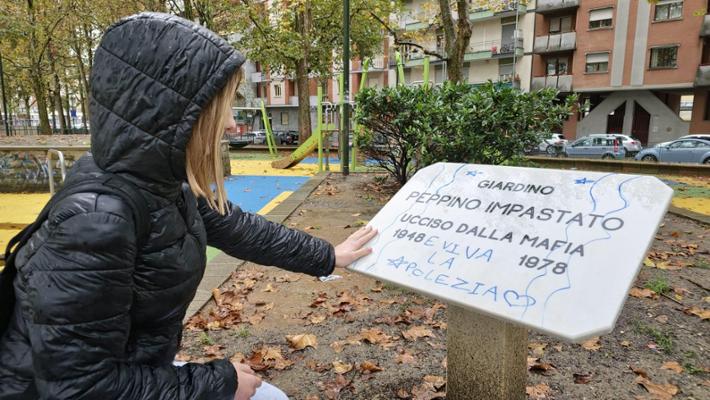 GIARDINO
PEPPINO IMPASTATO
UCCISO DALLA MAFIA
1948 1978
E VIVA
LA
POLEZIA